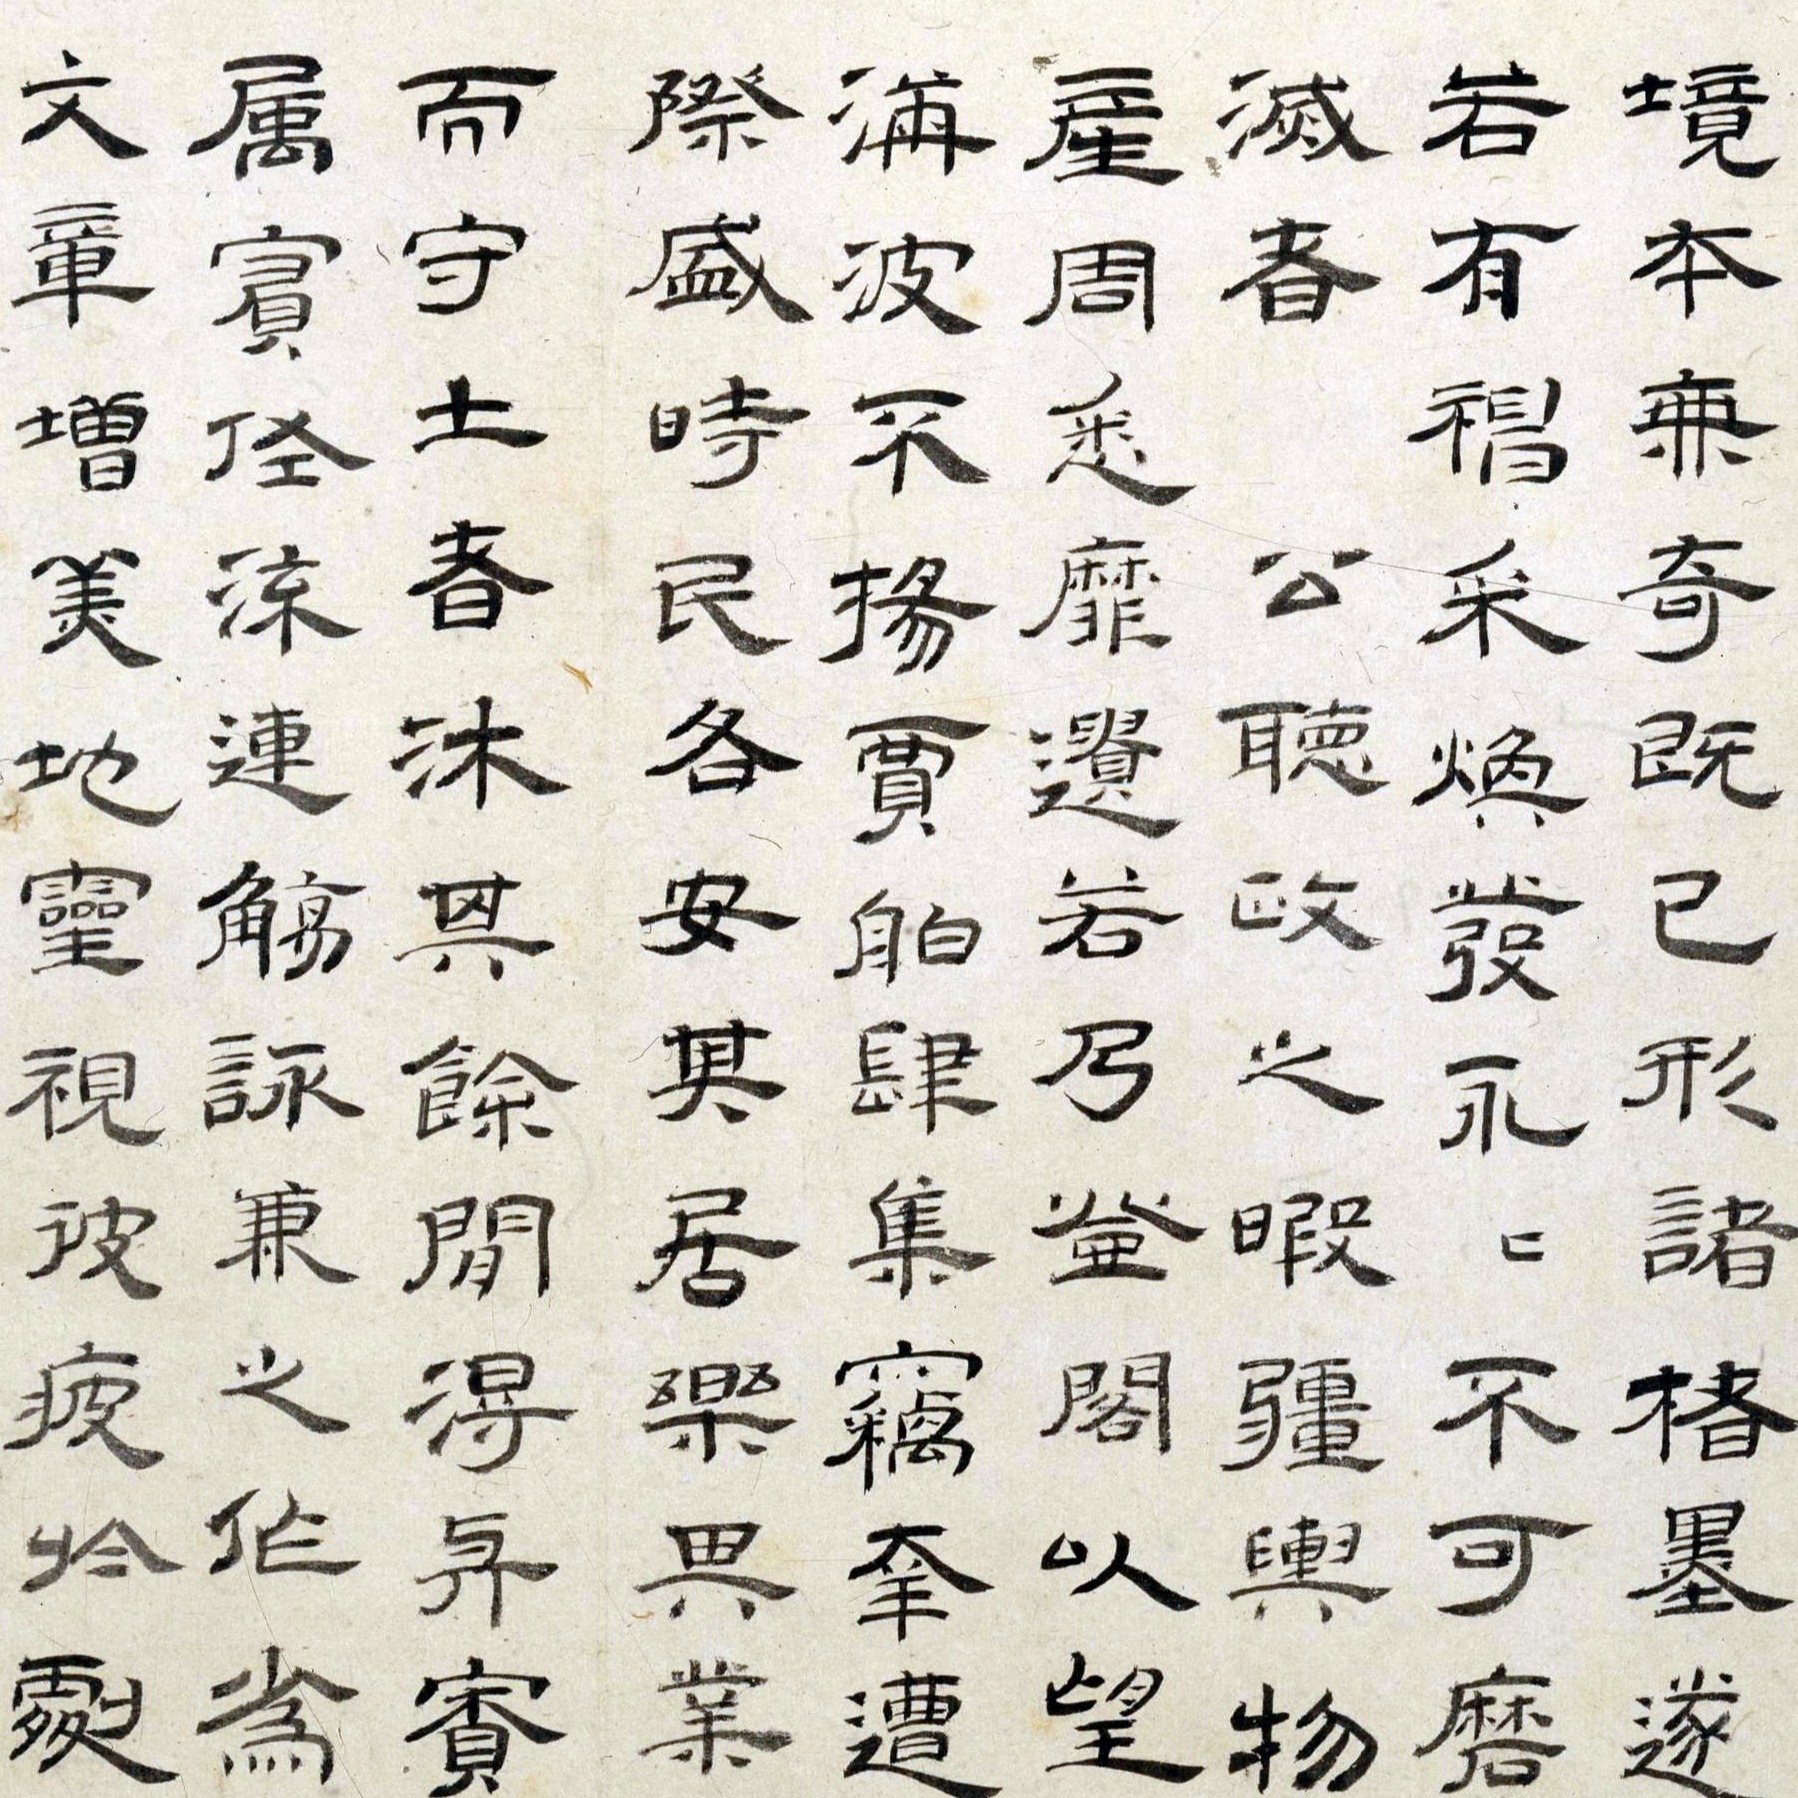 境本兼奇既已形諸楮墨遂
若有禓采煥發永〻不可磨
滅者　公聽政之暇疆輿物
產周悉靡遺若乃登閣以望
海波不揚賈舶肆集竊幸遭
際盛時民各安其居樂其業
而守土者沐其餘閒得與賓
属賓侄流連觴詠兼之作為
文章增美地靈視彼疲於